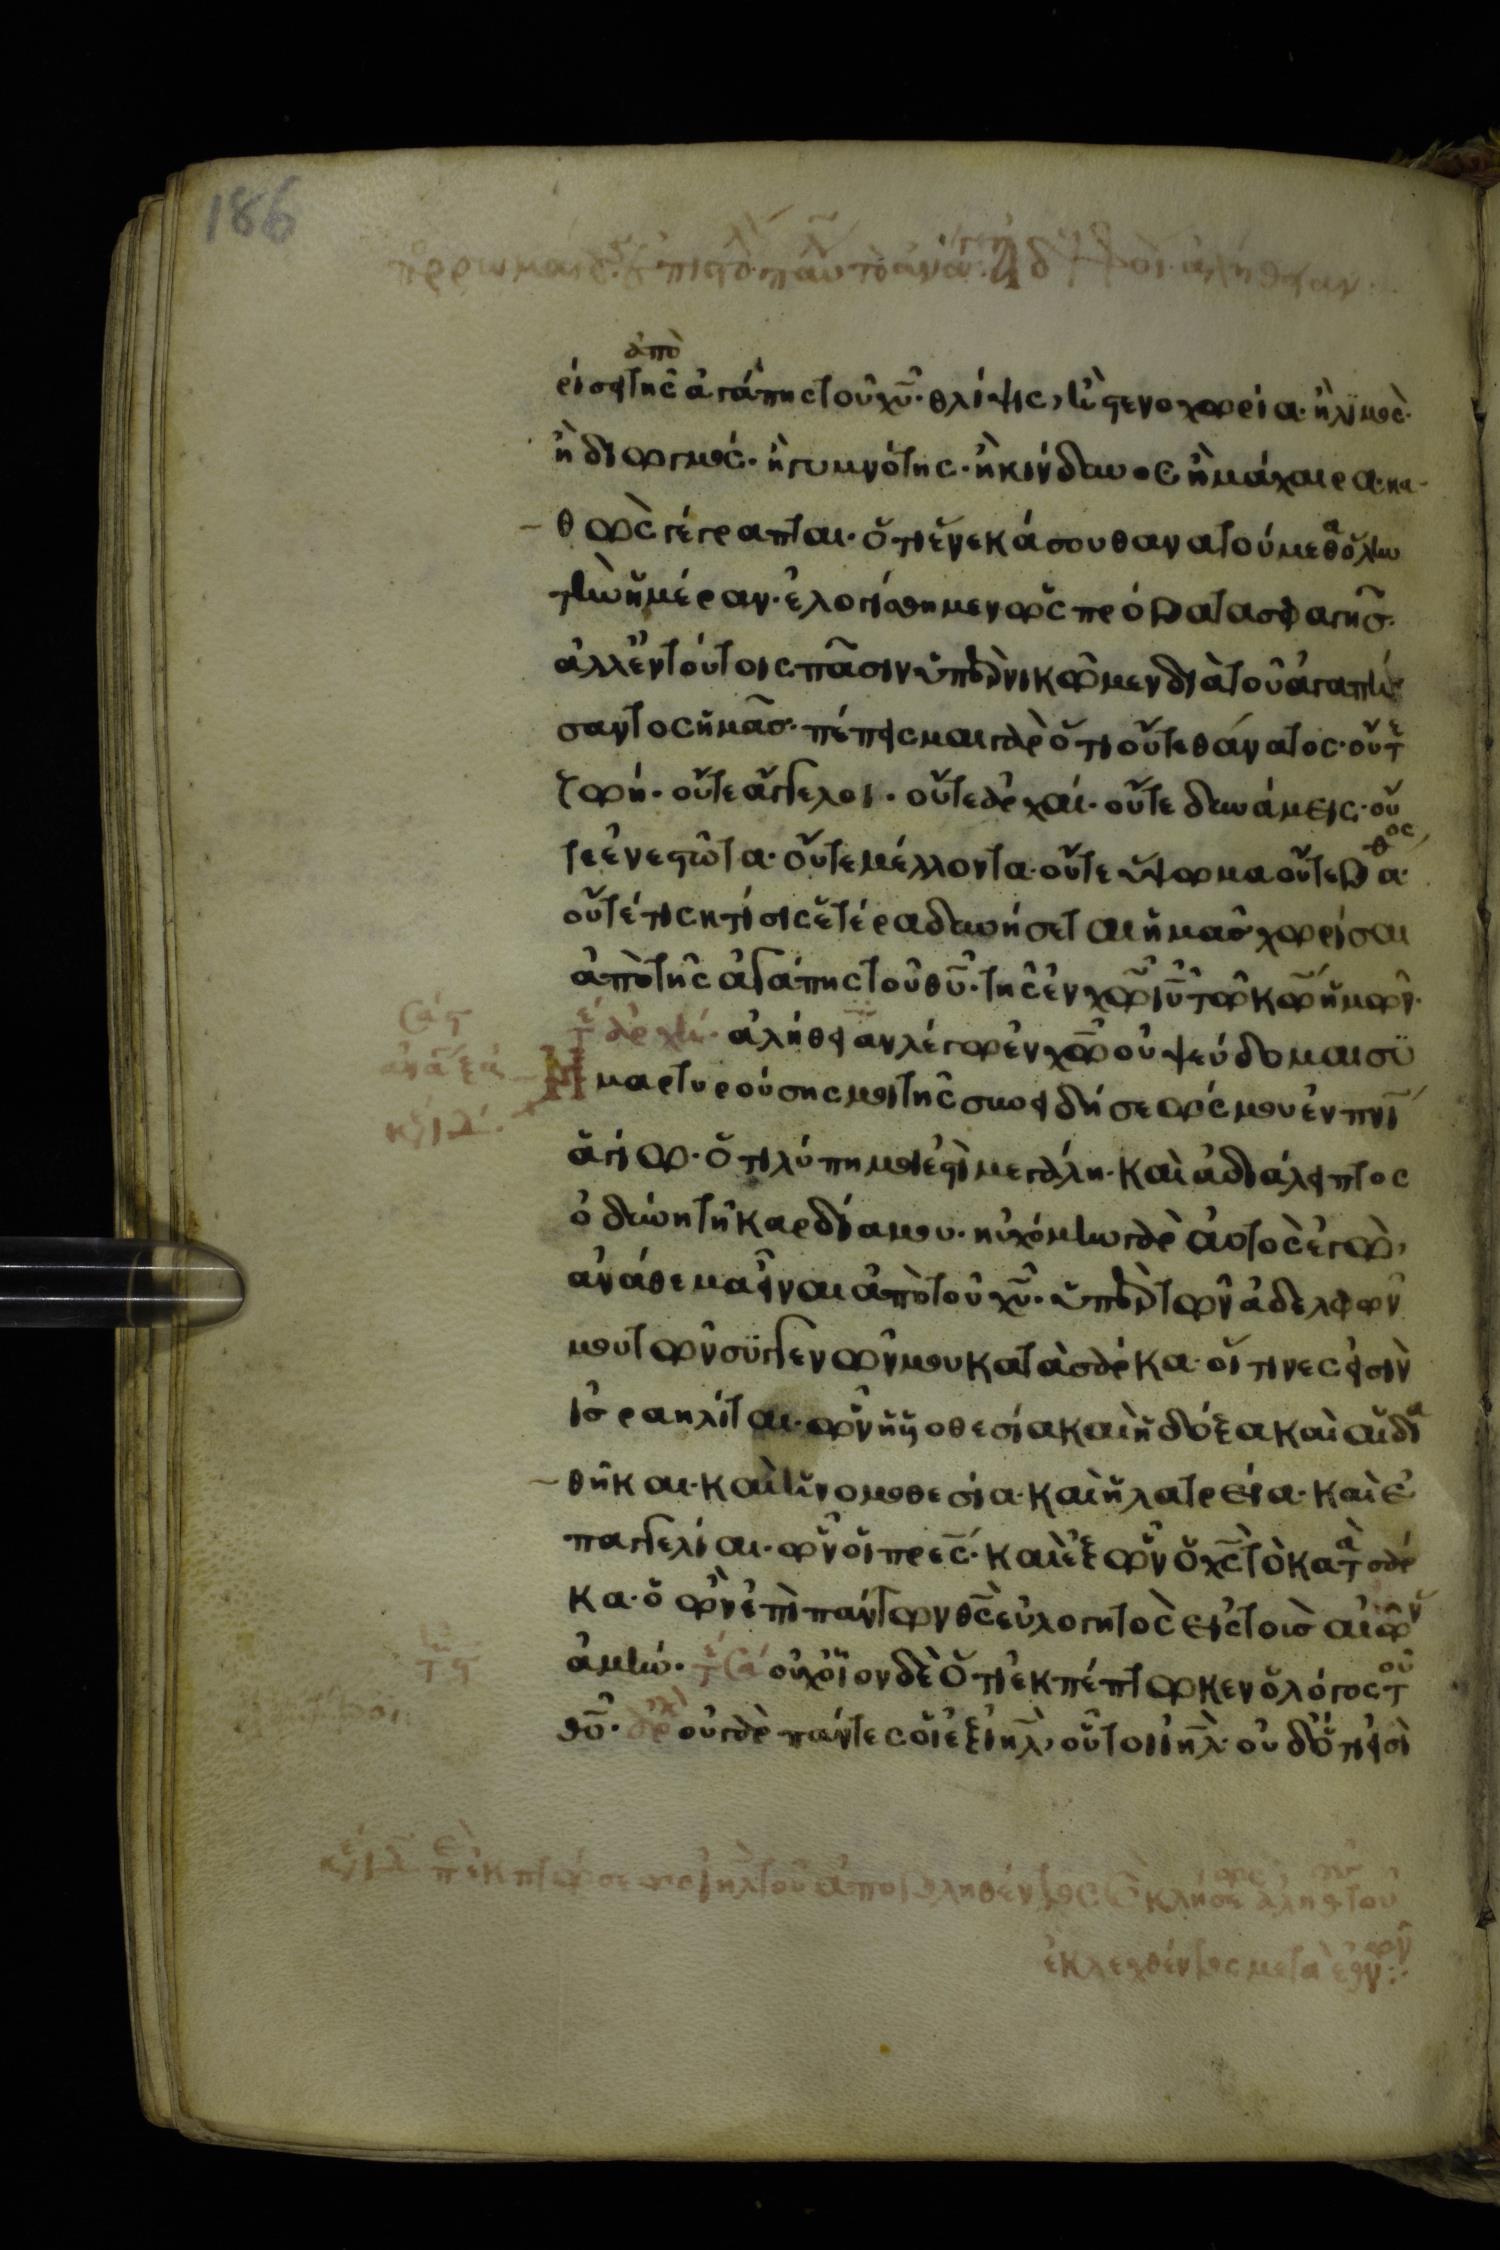 186
ἀπὸ
ρίσει τῆς ἀγάπης τοῦ χυ̅· θλίψις, ἢ στενοχωρία· ἢ λιμὸς·
ἢ διωγμός· ἢ γυμνότης· ἢ κίνδυνος ἢ μάχαιρα· κα
θὼς γέγραπται· ὅτι ἕνεκά σου θανατούμεθα ὅλην
τὴν ἡμέραν· ἐλογίσθημεν ὡς πρόβατα σφαγῆσ·
ἀλλ' ἐν τούτοις πᾶσιν ὑπὲρνικῶμεν διὰ τοῦ ἀγαπή
σαντος ἡμᾶσ· πέπεισμαι γὰρ ὅτι οὔτε θάνατος· οὔτε
ζωή· οὔτε ἄγγελοι· οὔτε ἀρχαί· οὔτε δυνάμεις· οὔ
τε ἐνεστῶτα· οὔτε μέλλοντα· οὔτε ὕψωμα οὔτε βάθος
οὔτέ τις κτίσις ἑτέρα δυνήσεται ἡμᾶσ χωρίσαι
ἀπὸ τῆς ἀγάπης τοῦ θυ̅· τῆς ἐν χω̅ ιυ̅ τῶ κω̅ ἡμῶν·
ἀρχὴ· ἀλήθειαν λέγω ἐν χω̅ οὐ ψεύδομαι συ
μαρτυρούσης μοι τῆς συνειδήσεώς μου ἐν πνι̅
ἁγίω· ὅτι λύπη μοι ἐστὶ μεγάλη· καὶ ἀδιάλειπτος
ὀδύνη τῆ καρδία μου· ηὐχόμην γὰρ αὐτὸς ἐγὼ,
ἀνάθεμα εἶναι ἀπὸ τοῦ χυ̅· ὑπὲρ τῶν ἀδελφῶν
μου τῶν συγγενῶν μου κατὰ σάρκα· οἵτινες εἰσὶν
ἰσραηλῖται· ὧν ἡ υἱοθεσία καὶ ἡ δόξα καὶ αἱ δια
θῆκαι· καὶ ἡ νομοθεσία· καὶ ἡ λατρεία· καὶ ἐ
παγγελίαι· ὧν οἱ πρες̅· καὶ ἐξ ὧν ὁ χς̅ τὸ κατὰ σάρ
κα· ὁ ὢν ἐπὶ πάντων θς̅ εὐλογητὸς εἰς τοὺσ αἰῶν
ἀμήν· οὐχ οἷον δὲ ὅτι ἐκπέπτωκεν ὁ λόγος τοῦ
θυ̅· οὐ γὰρ πάντες οἱ ἐξ ιηλ̅, οὗτοι ιηλ̅· οὐδ' ὅτι εἰσὶ
ἐκλεχθέντος μετὰ ἐθνῶν